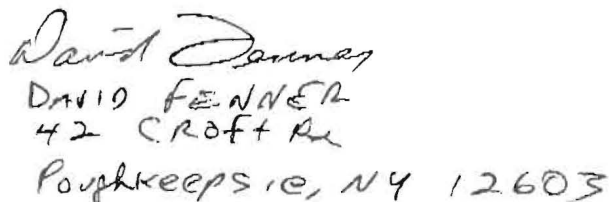 David Fenner
DAVID FENNER
42 CROFt Rd
Poughkeepsie, NY 12603